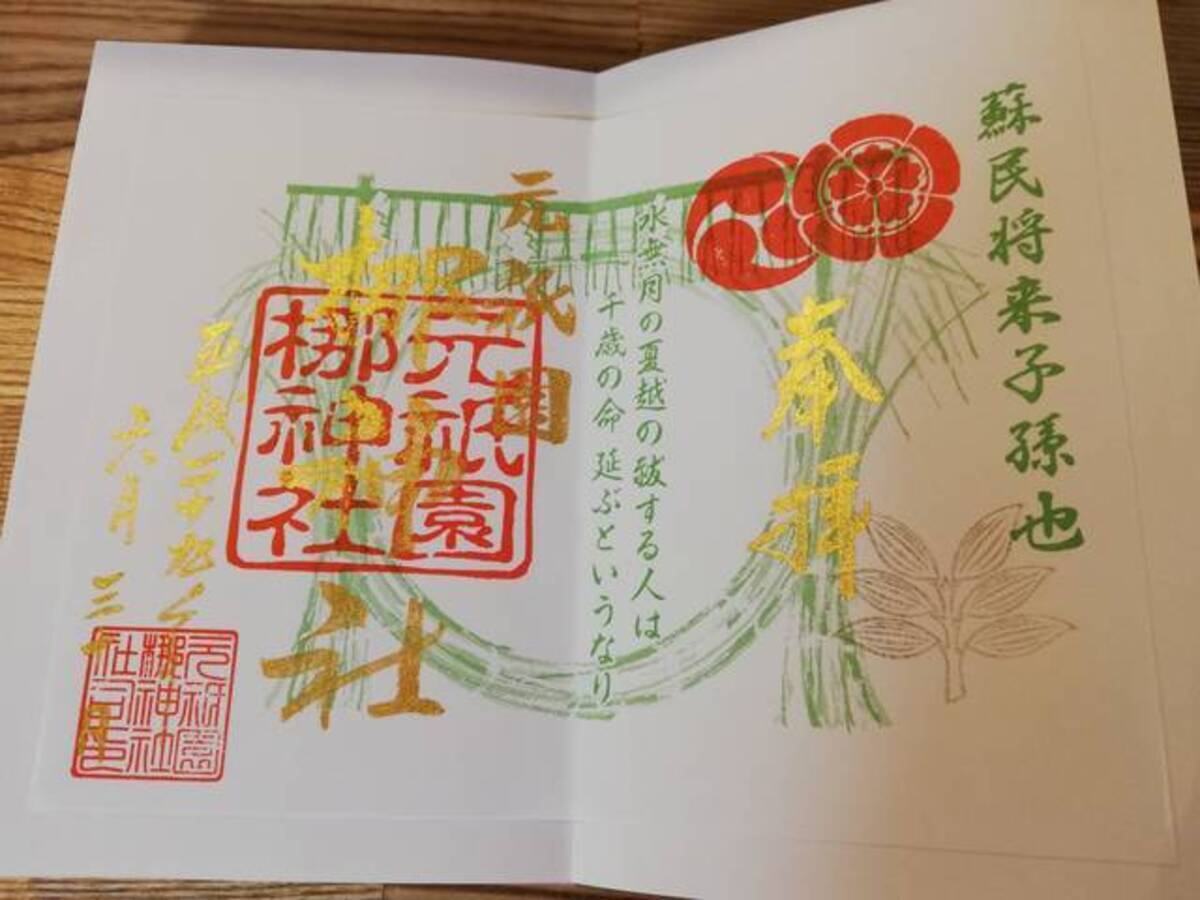 蘇民将来子孫也
奉拝
水無月の夏越の祓する人は
千歳の命延ぶというなり
元祇園
梛神社
元祇園
梛神社
平成二十九年
六月三十日
元祇園
梛神社